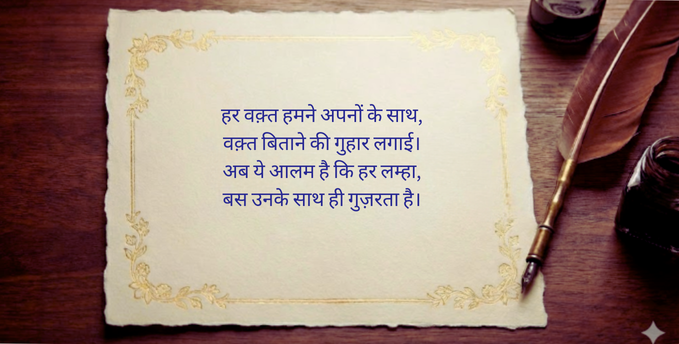 हर वक़्त हमने अपनों के साथ,
वक़्त बिताने की गुहार लगाई।
अब ये आलम है कि हर लम्हा,
बस उनके साथ ही गुज़रता है।